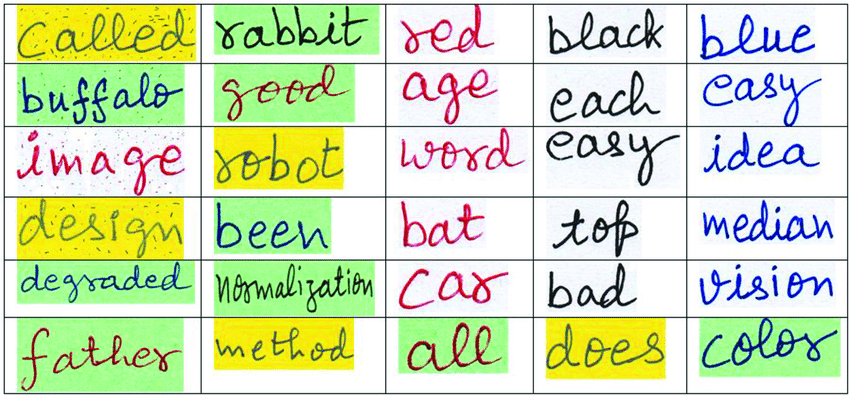 called rabbit red black blue
buffalo good age each easy
image robot word easy idea
design been bat top median
degraded normalization car bad vision
father method all does color